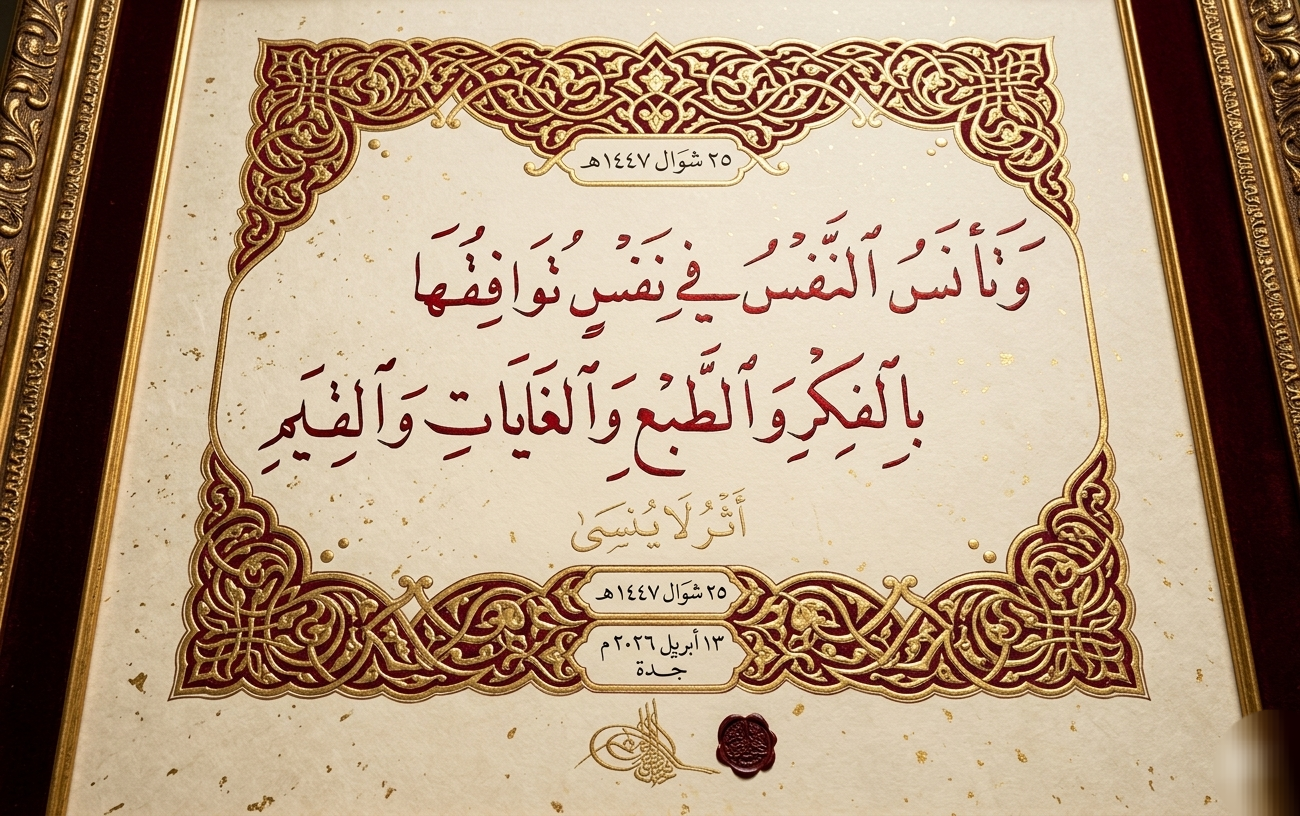 ٢٥ شوال ١٤٤٧هـ
وَتَأْنَسُ ٱلنَّفْسُ فِي نَفْسٍ تُوَافِقُهَا
بِٱلْفِكْرِ وَٱلطَّبْعِ وَٱلْغَايَاتِ وَٱلْقِيَمِ
أَثَرٌ لَا يُنْسَىٰ
٢٥ شوال ١٤٤٧هـ
١٣ أبريل ٢٠٢٦ م
جدة